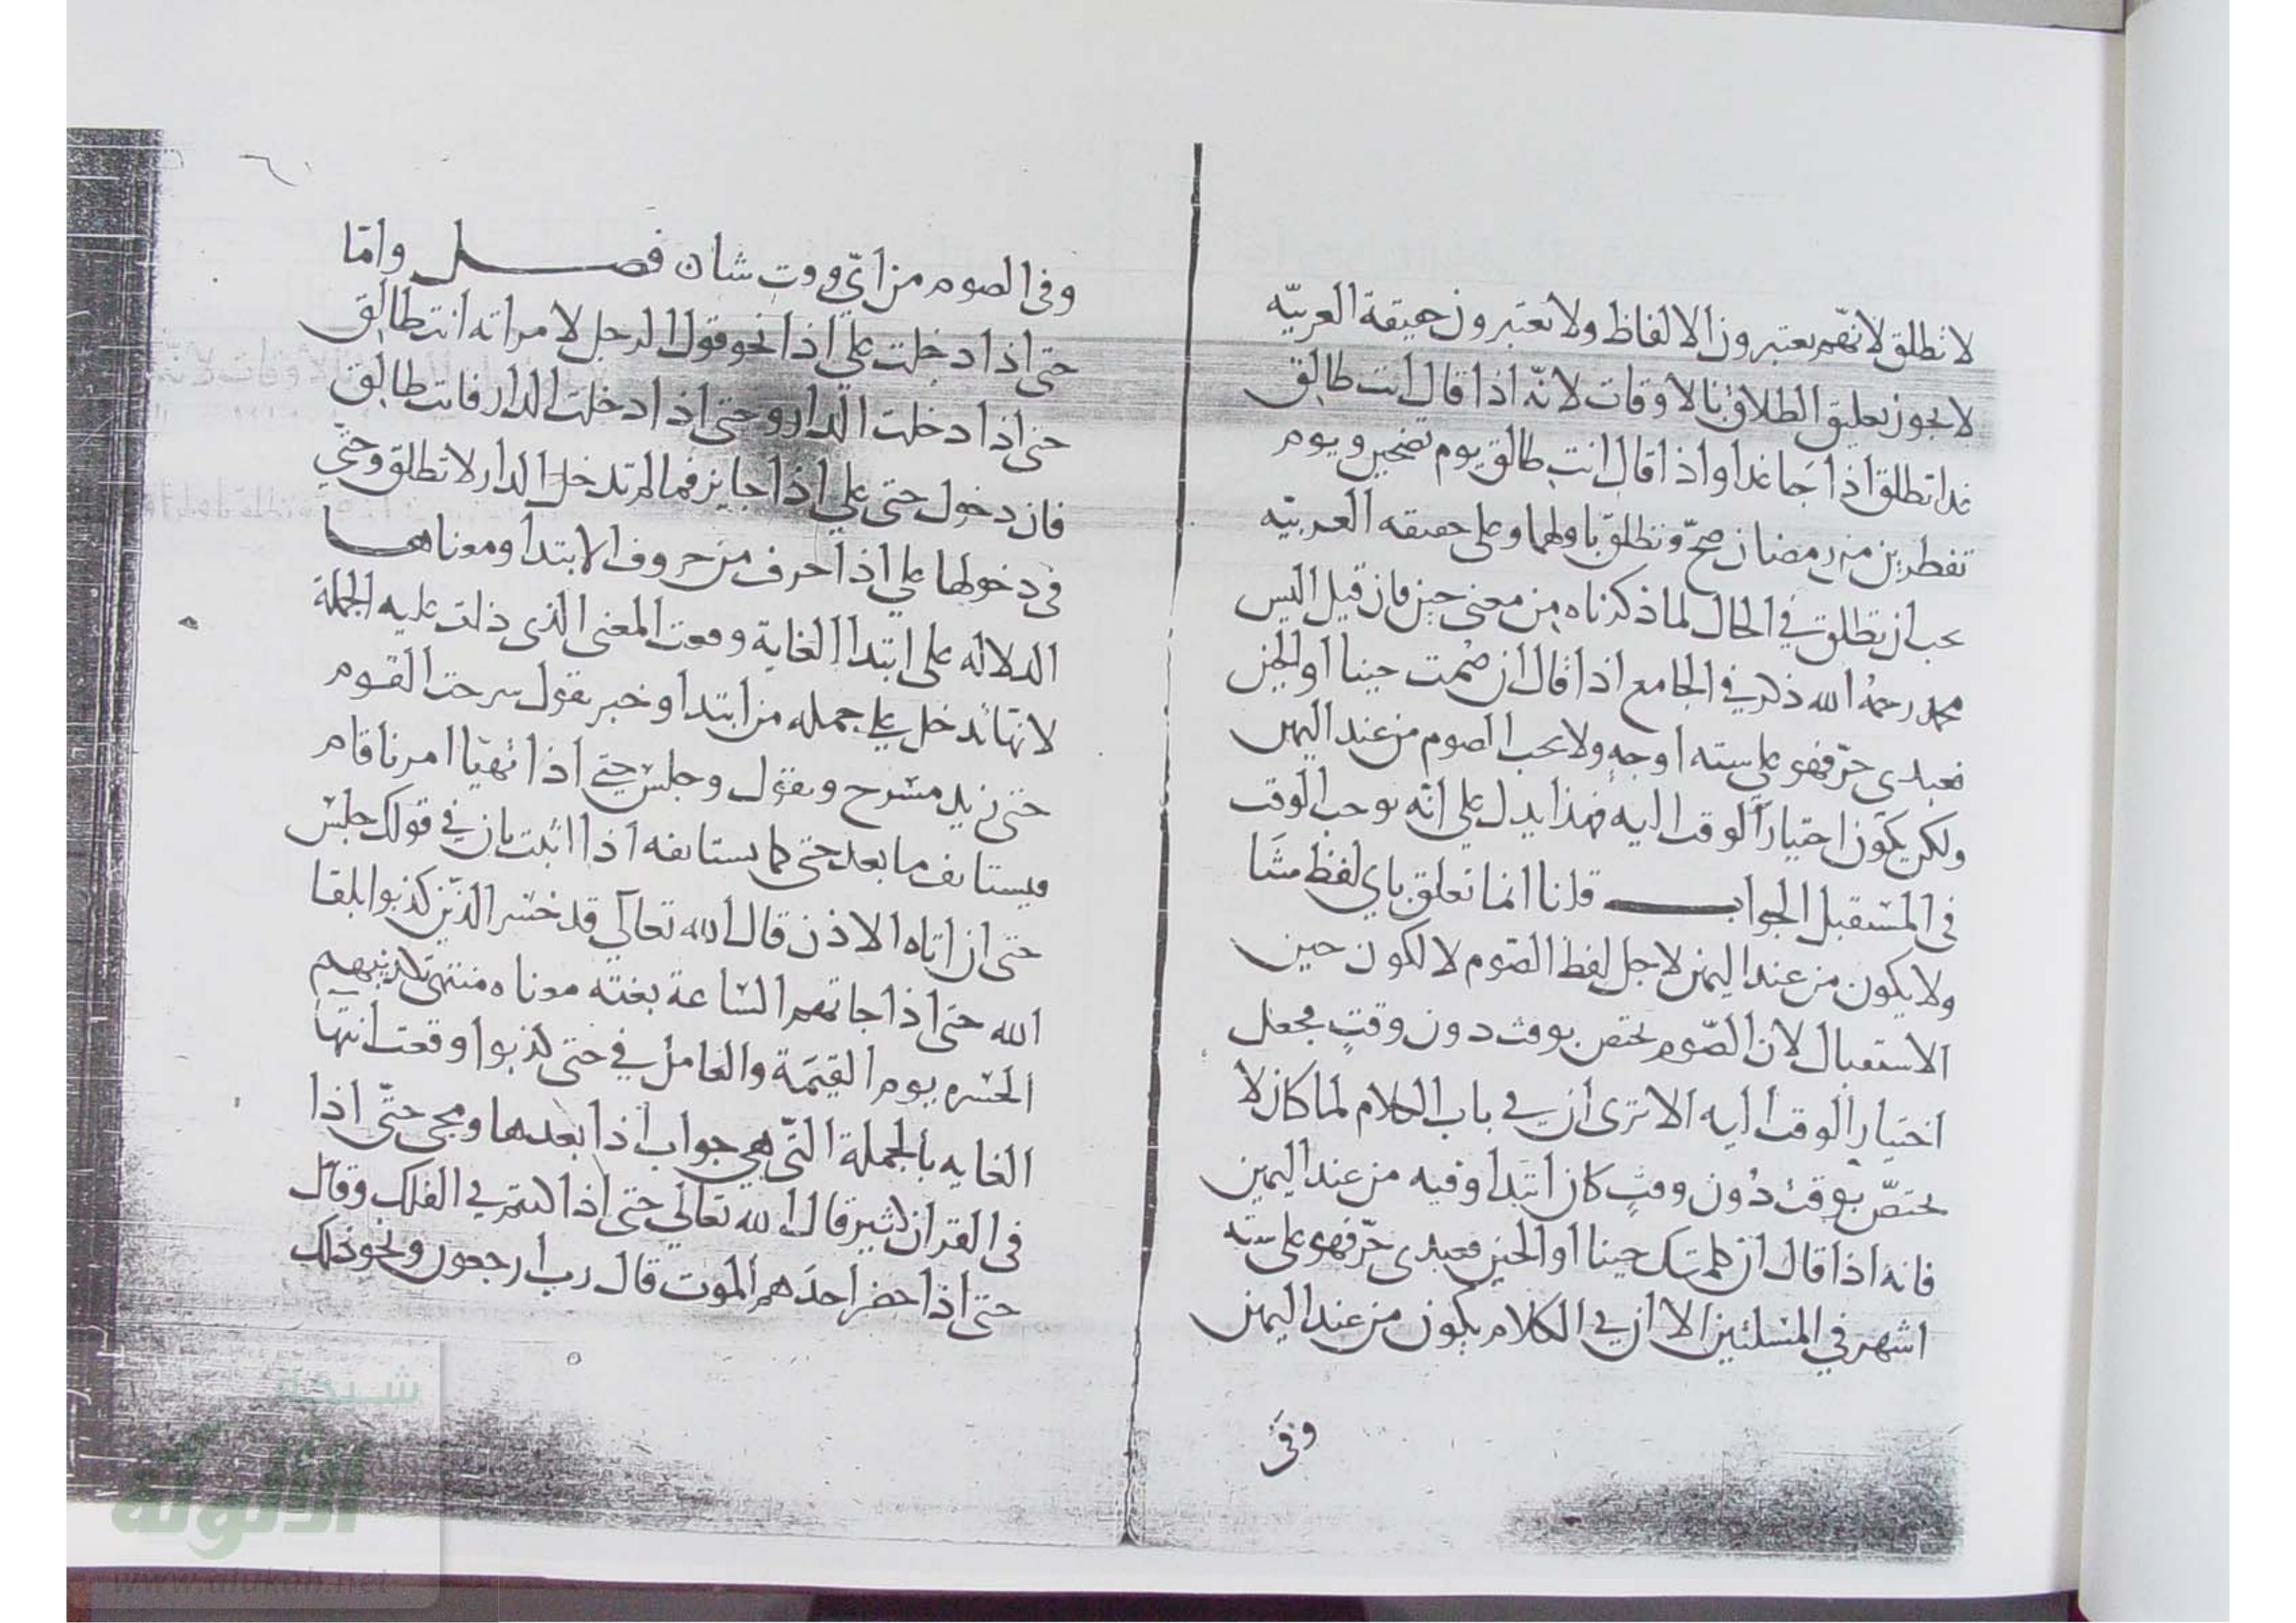 لا تطلق لانهم يعتبرون الالفاظ ولا تعتبرون حقيقة العربيّه
لا يجوز تعليق الطلاق بالاوقات لانّه اذا قال انت طالق
غدا تطلق اذا جا غدا واذا قال انت طالق يوم تضحين ويوم
تفطرين من رمضان صحّ وتطلق باولهما وعلى حقيقه العربيّه
يجب ان تطلق في الحال لما ذكرناه من معنى حين فان قيل اليس
محمد رحمه الله ذكر في الجامع اذا قال ان صُمت حينا او الحين
فعبدي حرّ فهو على سته اوجهٍ ولا يجب الصوم من عند اليمين
ولكن يكون اختيار الوقت اليه فهذا يدل على انّه يوجب الوقت
في المستقبل الجواب قلنا انما تعلق باي لفظ شَا
ولا يكون من عند اليمين لاجل لفظ الصّوم لا لكون حين
الاستقبال لان الصّوم يختص بوقت دون وقتٍ فجعل
اختيار الوقت اليه الا ترى ان في باب الكلام لما كان لا
يختصّ بوقت دُون وقتٍ كان ابتداوه فيه من عند اليمين
فانه اذا قال ان كلمتك حينا او الحين فعبدي حرّ فهو على سته
اشهر في المسلتين الا ان في الكلام يكون من عند اليمين
وفى
وفى الصوم من ايّ وقت شا ن فصل وامّا
حتى اذا دخلت على اذا نحو قول الرجل لامراته انت طالق
حتى اذا دخلت الدار وحتى اذا دخلت الدار فانت طالق
فان دخول حتى على اذا جايز فما لم تدخل الدار لا تطلق وحتّى
في دخولها على اذا حرف من حروف الابتدا ومعناها
الدلاله على ابتدا الغاية وقعت المعنى الذي دلت عليه الجملة
لانها تدخل على جمله من ابتدا وخبر تقول سرحت القوم
حتى زيد مسرح وتقول وجلس حتى اذا تهيّا امرنا قام
فيستانف ما بعد حتى كما يستانفه اذا اتيت بان في قولك جلس
حتى ان اتاه الاذن قال الله تعالى قد خسر الذّين كذبوا بلقا
الله حتى اذا جاتهم السّاعة بغته معناه منتهى تكذيبهم
الحسره يوم القيمَة والعامل في حتى كذبوا وقعت انتها
الغايه بالجملة التّى هي جواب اذا بعدها ومجى حتّى اذا
في القران كثير قال الله تعالى حتى اذا كنتم في الفلك وقال
حتى اذا حضر احدَهم الموت قال رب ارجعون ونحو ذلك
شبكة
الألوكة
www.alukah.net